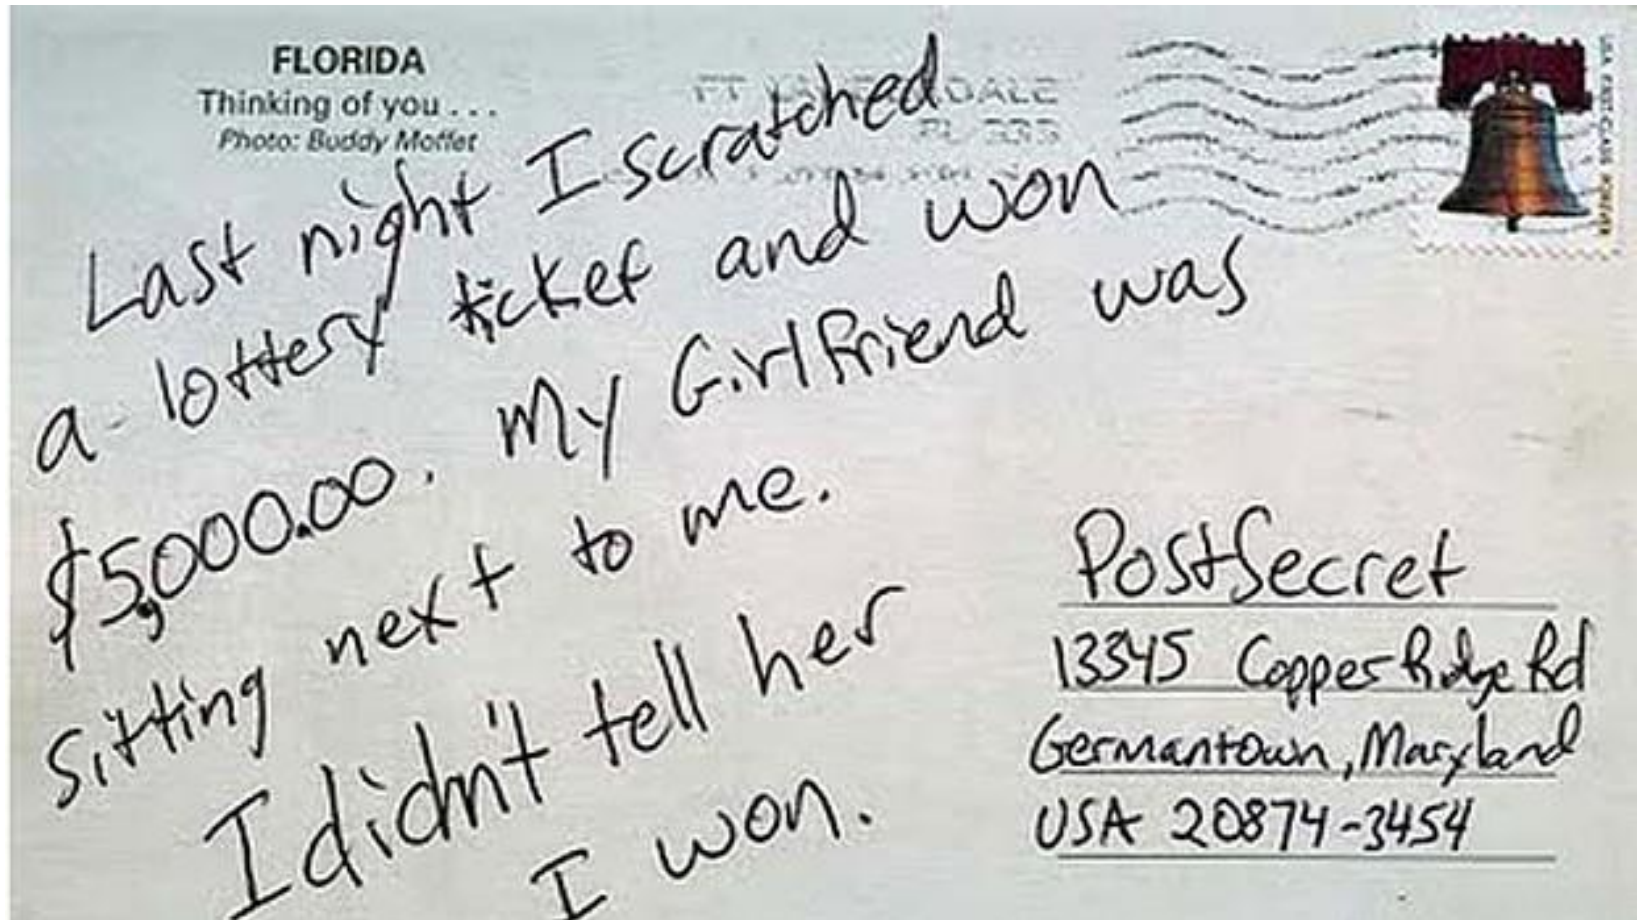 FLORIDA
Thinking of you . . .
Photo: Buddy Moffet
DALE
FL 333
USA FIRST-CLASS FOREVER
Last night I scratched
a lottery ticket and won
$5,000.00. My GirlFriend was
sitting next to me.
I didn't tell her
I won.
PostSecret
13345 Copper Ridge Rd
Germantown, Maryland
USA 20874-3454